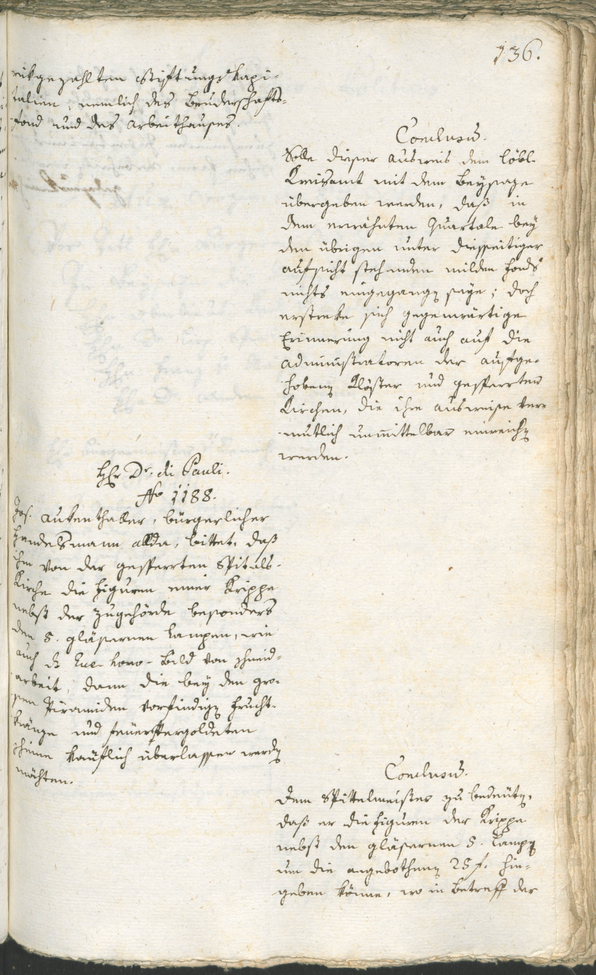 136.
rükgezahlten Stiftungs Kapi-
talien, nemlich des Bruderschafts-
fond und des Arbeithauses.
Conclusum.
Solle dieser Ausweis dem löbl.
Kreisamt mit dem Beysaze
übergeben werden, daß in
dem erwähnten Quartale bey
den übrigen unter diesseitiger
Aufsicht stehenden milden Fonds
nichts eingegangen seye; doch
erstreke sich gegenwärtige
Erinnerung nicht auch auf die
Administratoren der aufge-
hobenen Klöster und gesperrten
Kirchen, die ihre Ausweise ver-
mutlich unmittelbar einreichen
werden.
Hr. Dr. di Pauli.
No 1188.
Jos. Aukenthaler, bürgerlicher
Handelsmann allda, bittet, daß
ihm von der gesperrten Spitals-
Kirche die Figuren einer Krippe
nebst der Zugehörde besonders
den 5. gläsernen Lampen, wie
auch das Ecce-homo-Bild von Schneid-
arbeit; dann die bey den gro-
ßen Piramiden vorfindigen Frucht-
kränge und feuervergoldeten
käuflich überlassen werden
möchten.
Conclusum.
Dem Spittelmeister zu bedeuten,
daß er die Figuren der Krippe
nebst den gläsernen 5. Lampen
um die angebothenen 25 f. hin-
geben könne, wo in Betreff der